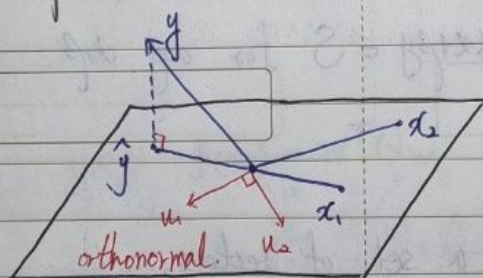 y
ŷ
x₂
x₁
u₁
u₂
orthonormal.